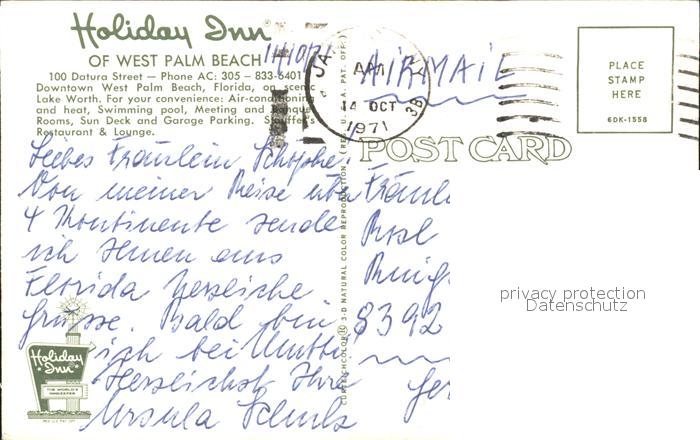 Holiday Inn®
OF WEST PALM BEACH
100 Datura Street — Phone AC: 305 - 833-6401
Downtown West Palm Beach, Florida, on scenic
Lake Worth. For your convenience: Air-conditioning
and heat, Swimming pool, Meeting and
Rooms, Sun Deck and Garage Parking. Stouffer's
Restaurant & Lounge.
AIRMAIL
JA
AM
14 OCT
1971
3B
PLACE
STAMP
HERE
6DK-1558
POST CARD
Liebes Fräulein
Von meiner Reise
4 Kontinente sende
ich Ihnen aus
Florida herzliche
Grüsse. Bald bin
ich bei Mutti
Herzlichst Ihre
Ursula Schulz
Fräul
8392
Ger
3-D NATURAL COLOR REPRODUCTION (REG. U.S.A. PAT. OFF.)
Holiday
Inn
THE WORLD'S
INNKEEPER
REG. U.S. PAT. OFF.
privacy protection
Datenschutz